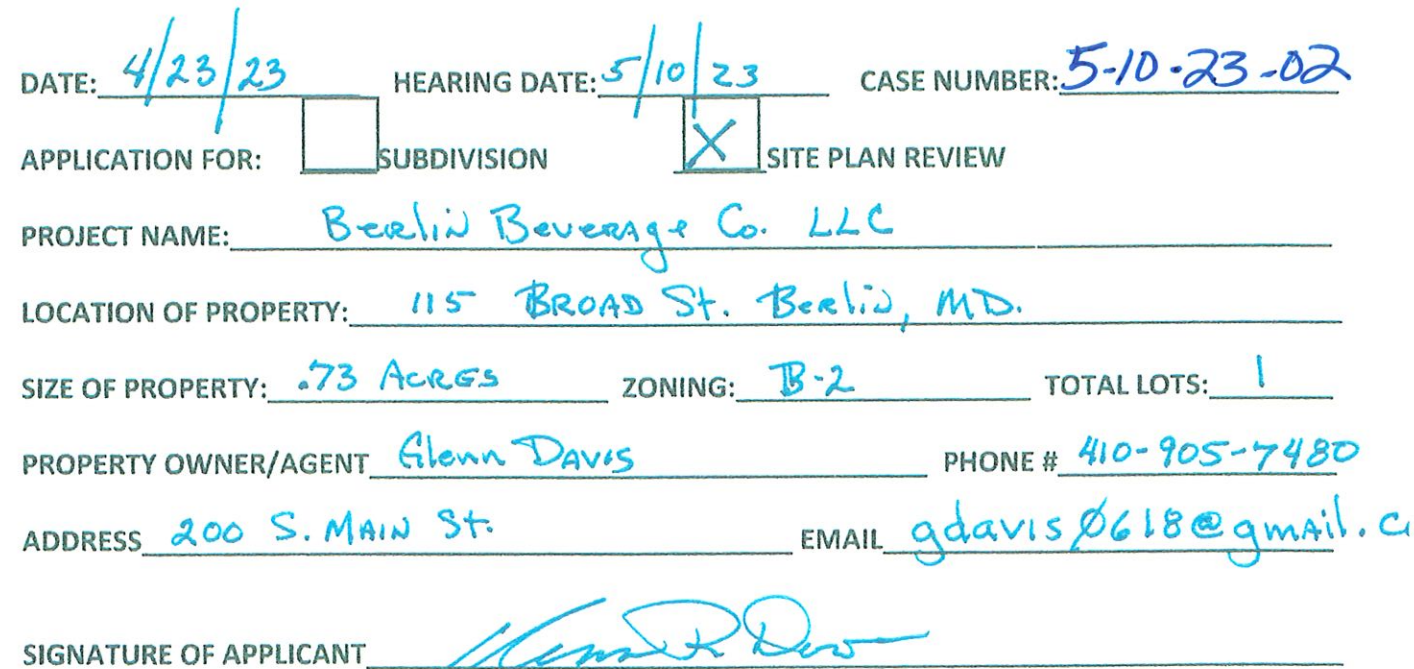 DATE: 4/23/23 HEARING DATE: 5/10/23 CASE NUMBER: 5-10-23-02
APPLICATION FOR: SUBDIVISION X SITE PLAN REVIEW
PROJECT NAME: Berlin Beverage Co. LLC
LOCATION OF PROPERTY: 115 BROAD St. Berlin, MD.
SIZE OF PROPERTY: .73 ACRES ZONING: B-2 TOTAL LOTS: 1
PROPERTY OWNER/AGENT Glenn DAVIS PHONE # 410-905-7480
ADDRESS 200 S. MAIN St. EMAIL gdavis0618@gmail.c
SIGNATURE OF APPLICANT